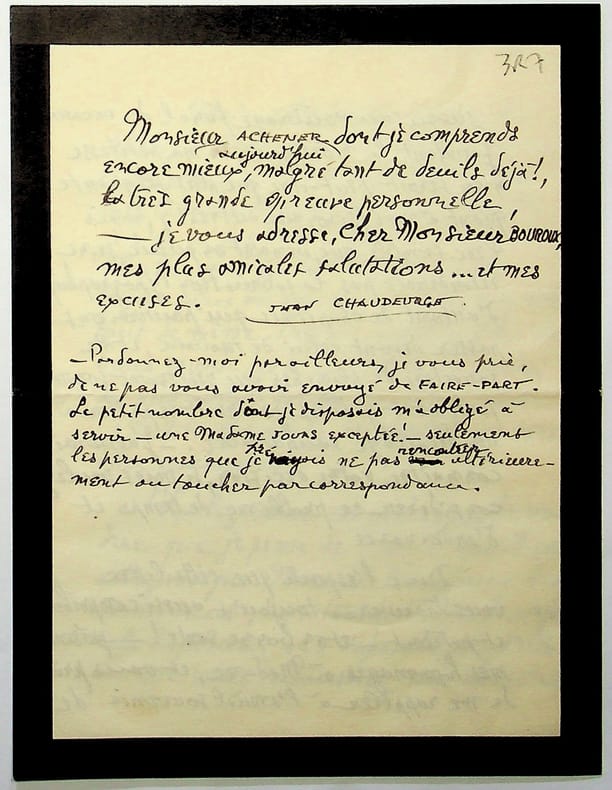 3R7
Monsieur ACHENER dont je comprends
aujourd'hui
encore mieux, malgré tant de deuils déjà!,
la très grande épreuve personnelle,
— je vous adresse, Cher Monsieur BOUROUX,
mes plus amicales salutations ... et mes
excuses. JEAN CHAUDEURGE.
— Pardonnez-moi par ailleurs, je vous prie,
de ne pas vous avoir envoyé de FAIRE-PART.
Le petit nombre dont je disposais m'a obligé à
servir — une Madame JOUAS exceptée! — seulement
les personnes que je ne pas rencontrer ultérieure-
ment ou toucher par correspondance.